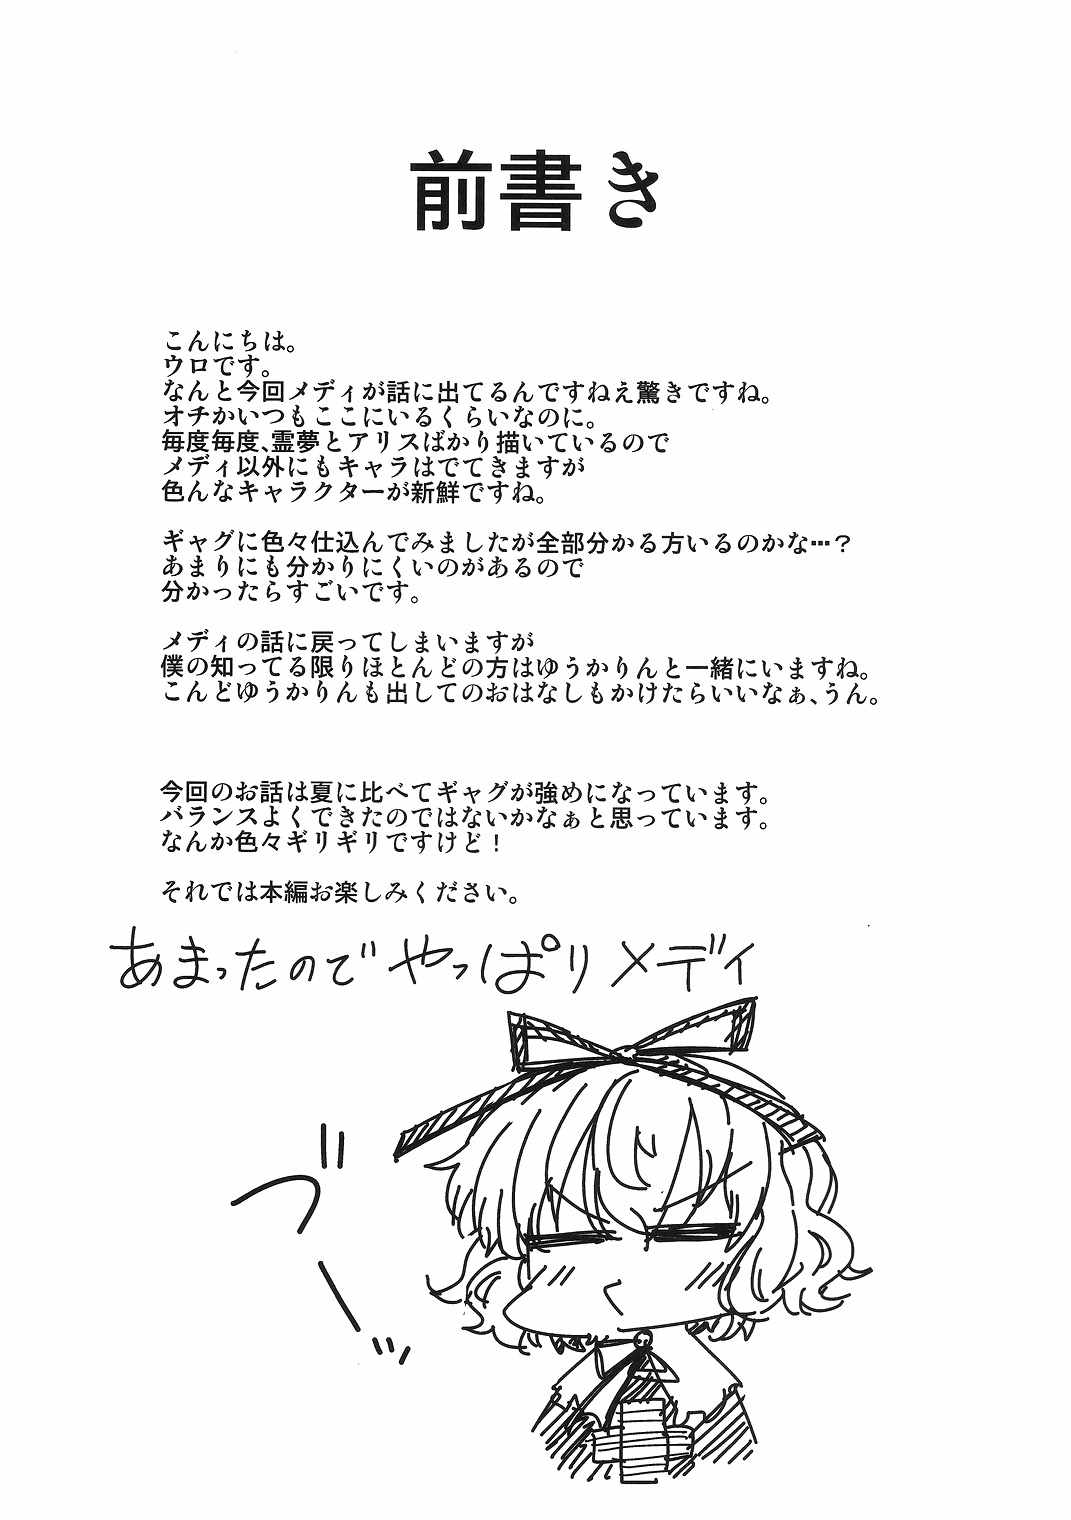 前書き
こんにちは。
ウロです。
なんと今回メディが話に出てるんですねえ驚きですね。
オチかいつもここにいるくらいなのに。
毎度毎度、霊夢とアリスばかり描いているので
メディ以外にもキャラはでてきますが
色んなキャラクターが新鮮ですね。
ギャグに色々仕込んでみましたが全部分かる方いるのかな…？
あまりにも分かりにくいのがあるので
分かったらすごいです。
メディの話に戻ってしまいますが
僕の知ってる限りほとんどの方はゆうかりんと一緒にいますね。
こんどゆうかりんも出してのおはなしもかけたらいいなぁ、うん。
今回のお話は夏に比べてギャグが強めになっています。
バランスよくできたのではないかなぁと思っています。
なんか色々ギリギリですけど！
それでは本編お楽しみください。
あまったのでやっぱりメディ